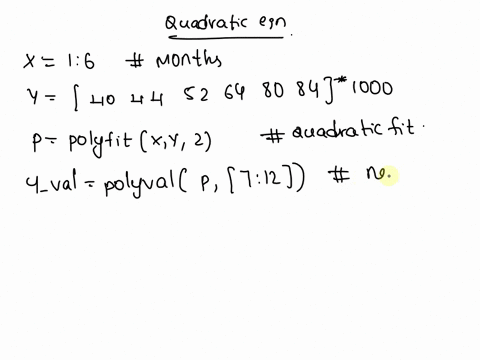 Quadratic eqn.
X = 1:6 # months
Y = [ 40 44 52 64 80 84 ] * 1000
P = polyfit (X, Y, 2) # quadratic fit.
Y_val = polyval( P, [7:12]) #